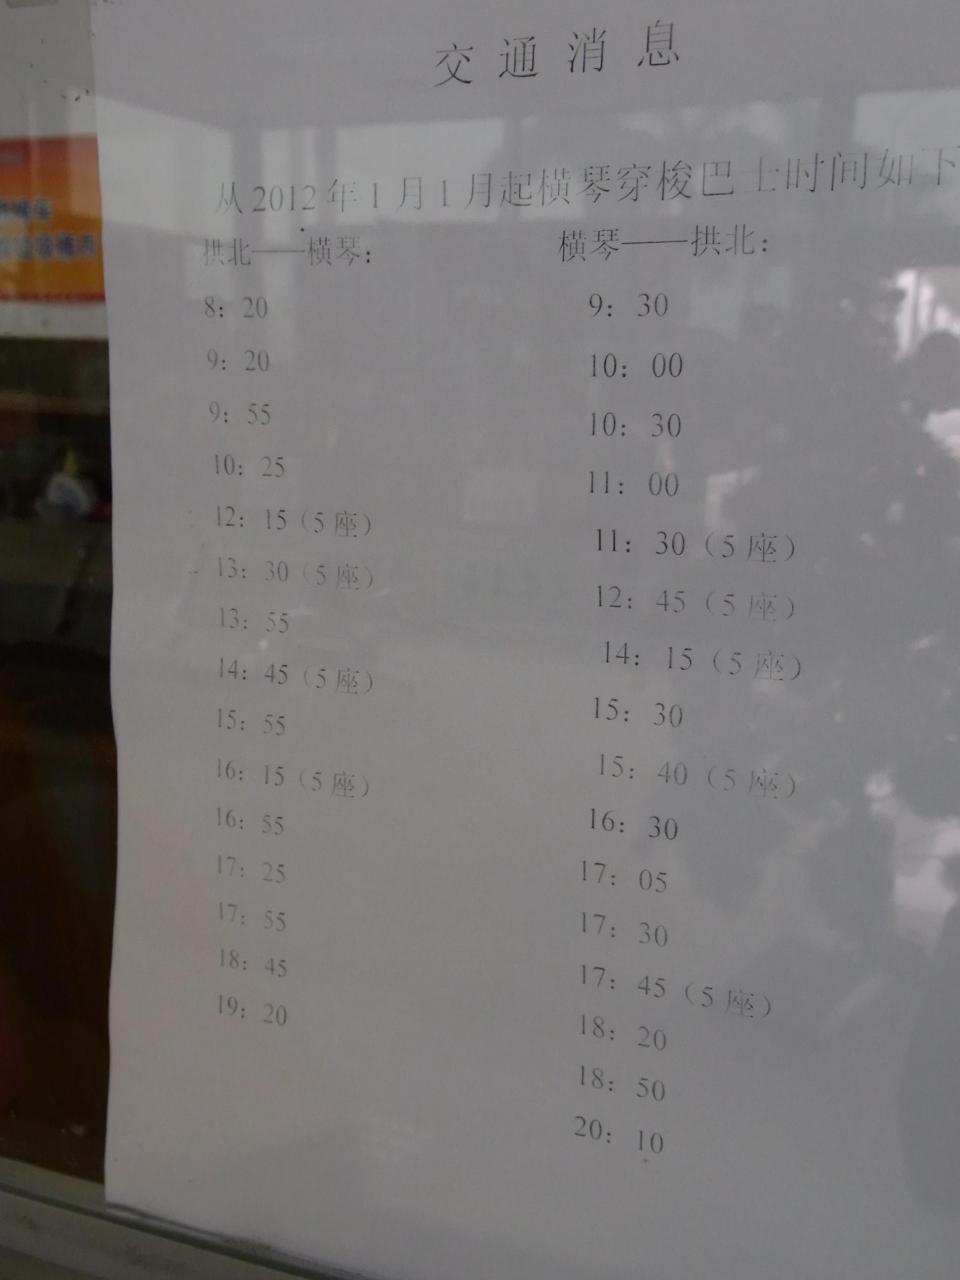 交通消息
从2012年1月1月起横琴穿梭巴士时间如下
拱北——横琴：
8：20
9：20
9：55
10：25
12：15（5座）
13：30（5座）
13：55
14：45（5座）
15：55
16：15（5座）
16：55
17：25
17：55
18：45
19：20
横琴——拱北：
9：30
10：00
10：30
11：00
11：30（5座）
12：45（5座）
14：15（5座）
15：30
15：40（5座）
16：30
17：05
17：30
17：45（5座）
18：20
18：50
20：10